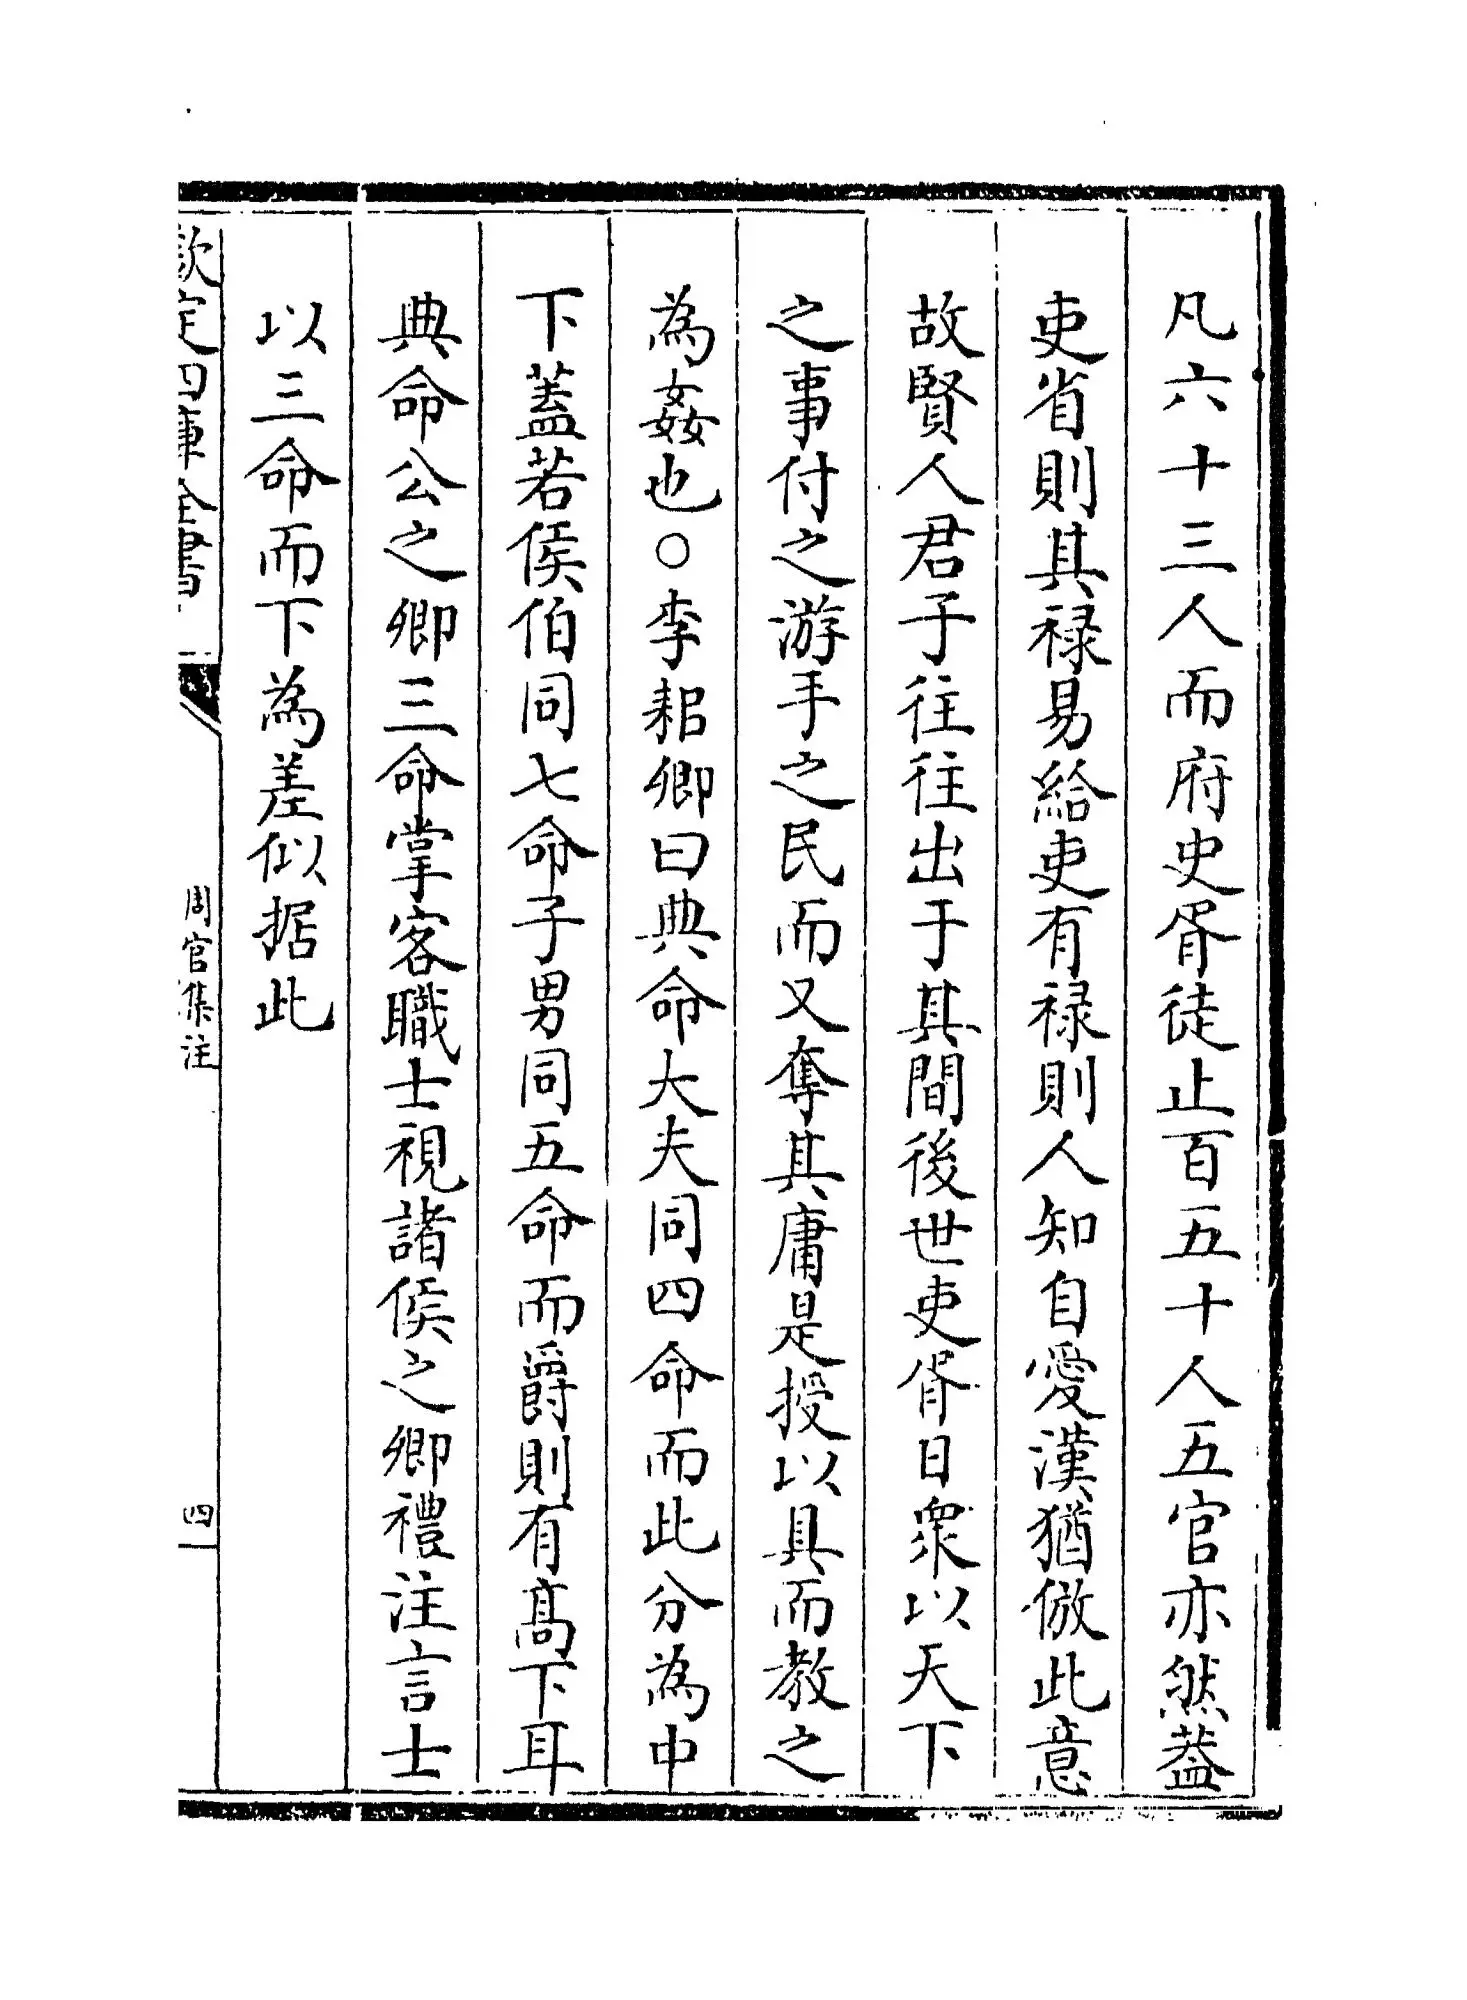 凡六十三人而府史胥徒止百五十人五官亦然蓋
吏省則其禄易給吏有禄則人知自愛漢猶倣此意
故賢人君子往往出于其間後世吏胥日衆以天下
之事付之游手之民而又奪其庸是授以具而教之
為姦也○李耜卿曰典命大夫同四命而此分為中
下蓋若侯伯同七命子男同五命而爵則有髙下耳
典命公之卿三命掌客職士視諸侯之卿禮注言士
以三命而下為差似据此
欽定四庫全書
周官集注
四